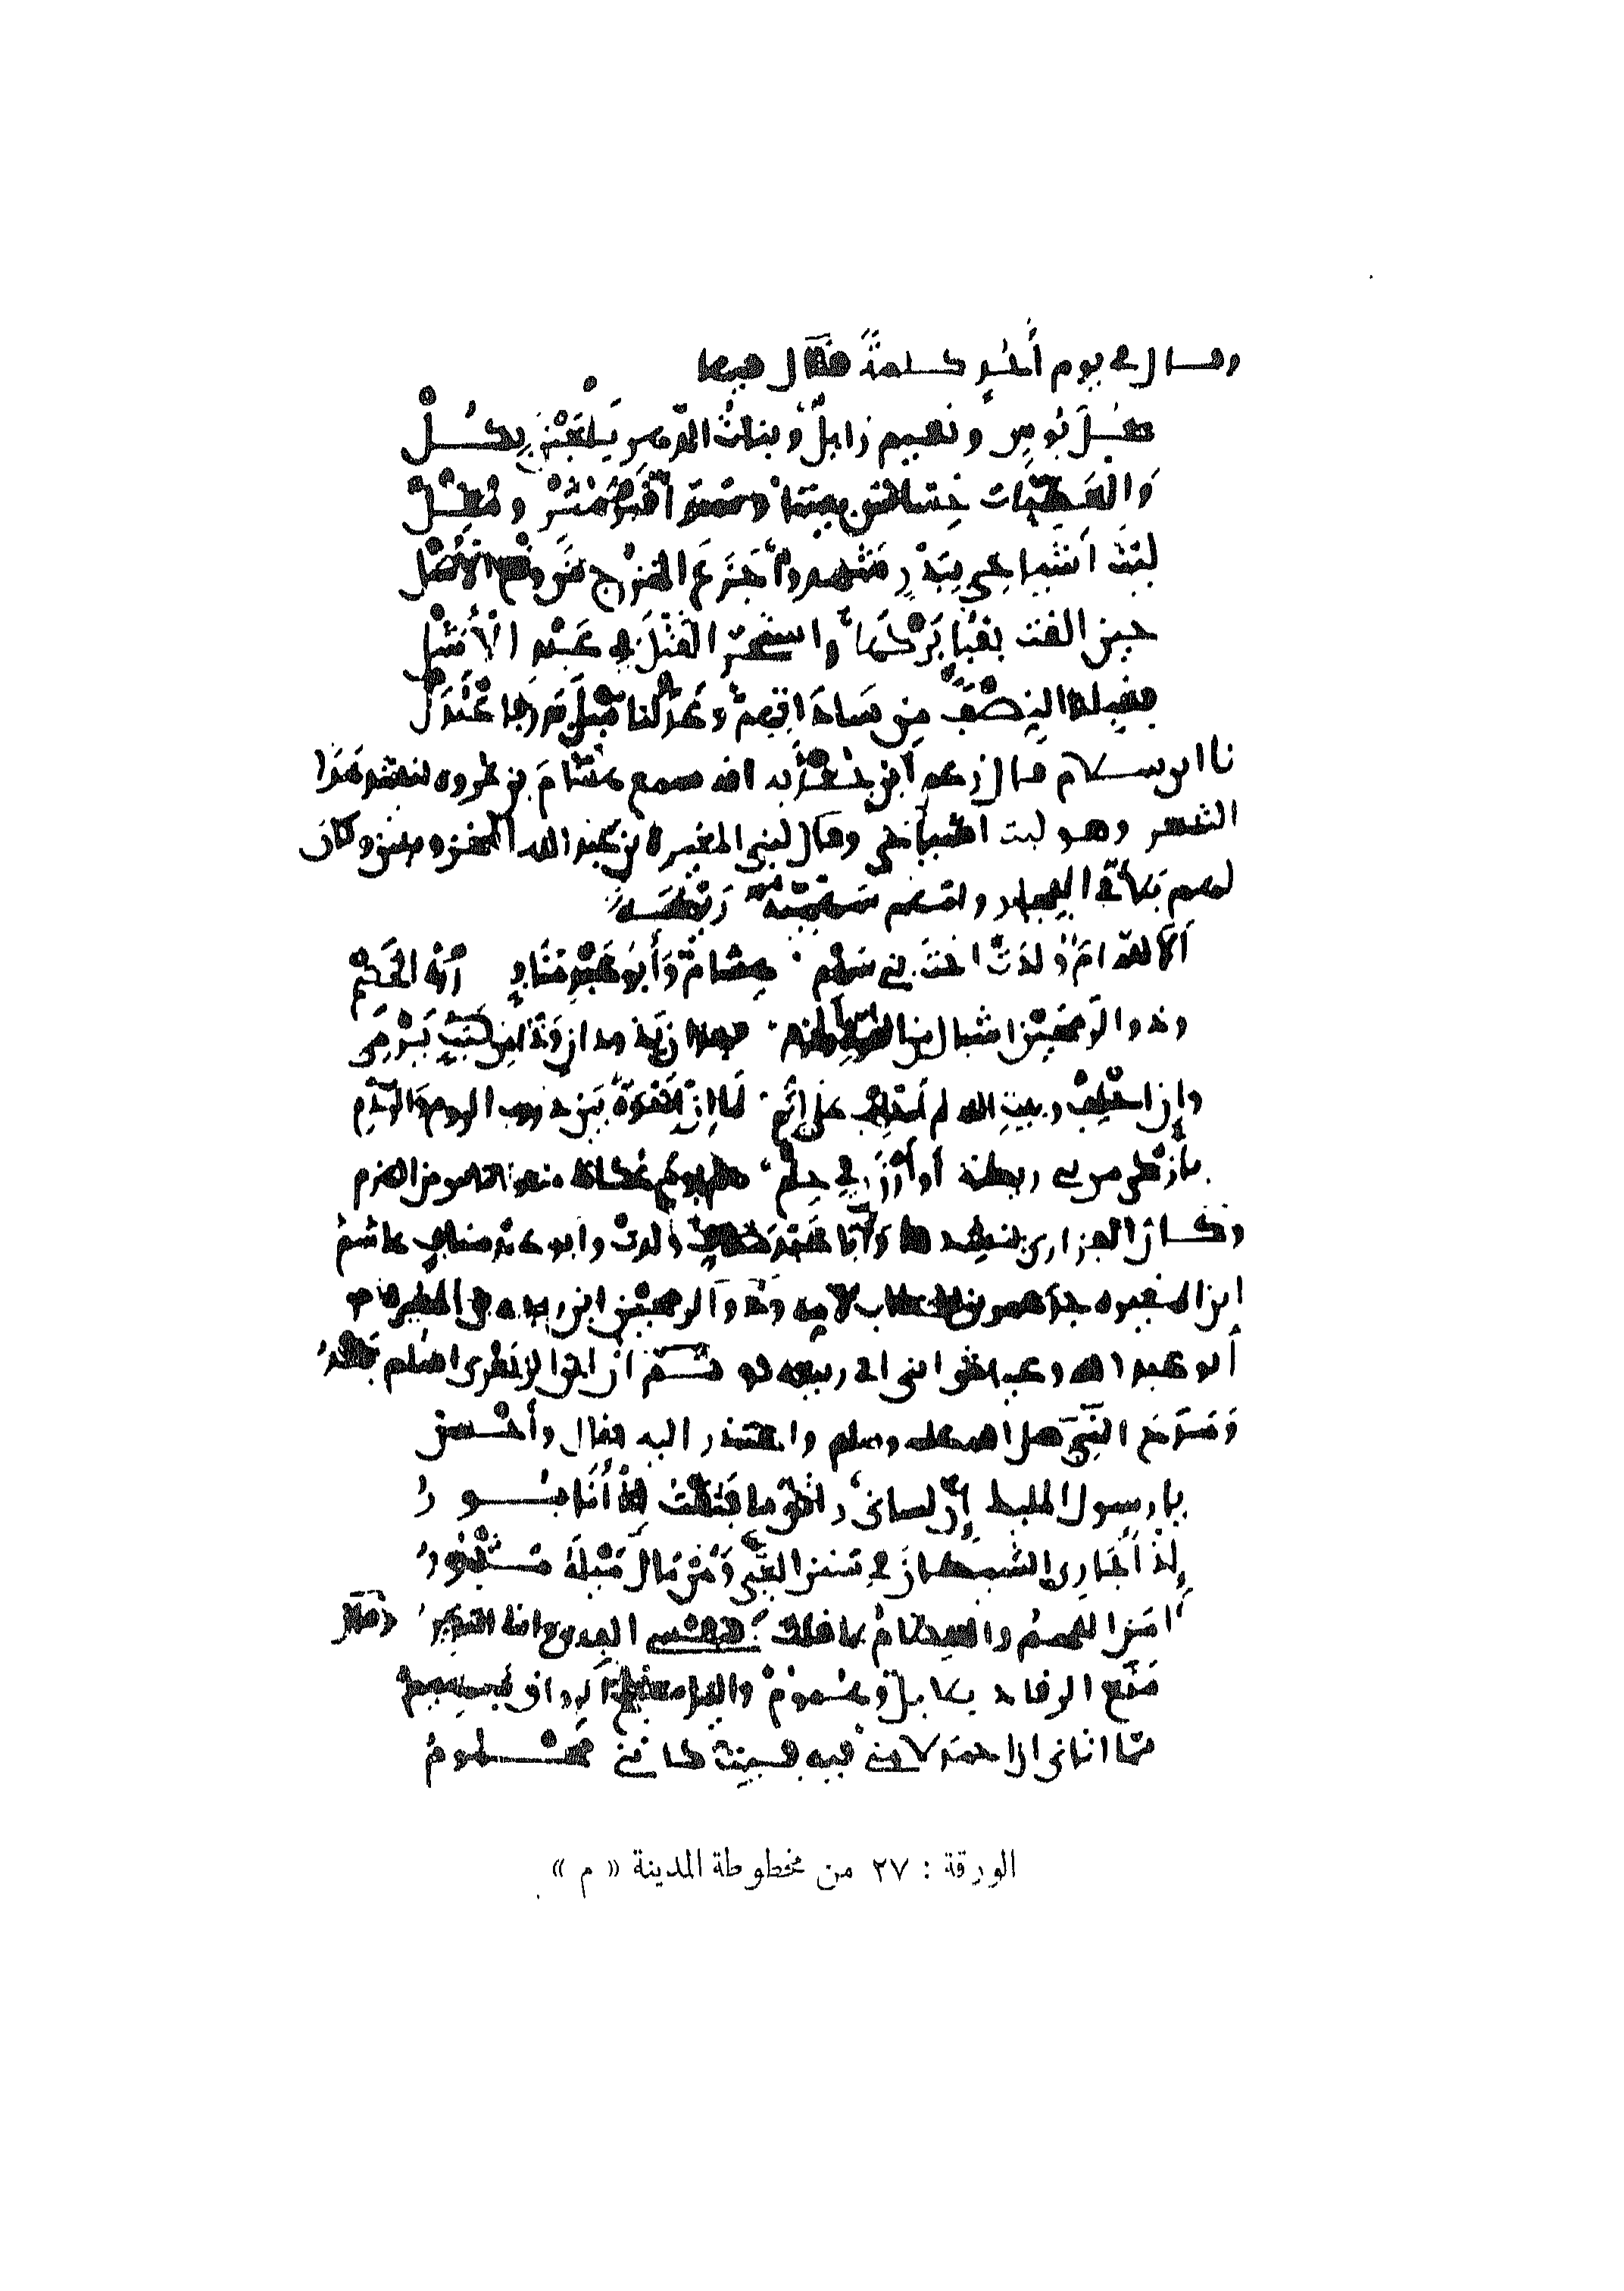 وقال في يوم أحد كلمة فقال فيها
كل بوس ونعيم زايل وبنات الدهر يلعبن بكل
والعطيات خساس بيننا وسواء قبر مثر ومقل
ليت أشياخي ببدر شهدوا جزع الخزرج من وقع الأسل
حين القت بقباء بركها واستحر القتل في عبد الأشل
فقبلنا النصف من ساداتهم وعدلنا ميل بدر فاعتدل
نا ابن سلام قال زعم ابن جعدبه انه سمع هشام بن عروه ينشد هذا
الشعر وهو ليت أشياخي وقال لبني المغيرة بن عبد الله المخزوميين وكان
لهم بلا في الفجار وامهم سهمية ريطة
ألا لله قوم ولدت اخت بني سهم هشام وأبو عبد مناف مدره الخصم
وذو الرمحين اشبال من القوة والحزم فهذان يذودان وذا من كثب يرمي
وإن احلف وبيت الله لم احلف على إثم لما ان إخوة بين دروب الروم والردم
بأزكى من بني ريطة أو أرزن في حلم
وكان الفزاري ينشدها وأبا عبد مناف ولدت وابو عبد مناف هاشم
ابن المغيره جد عمر بن الخطاب لامه وذو الرمحين ابن ربيعه بن المغيره
أبو عبد الله وعياش ابني ابي ربيعه ثم ان ابن الزبعرى اسلم بعد
ومدح النبي صلى الله عليه وسلم واعتذر اليه فقال وأحسن
يا رسول المليك إن لساني راتق ما فتقت إذ أنا بور
إذ أجاري الشيطان في سنن الغي ومن مال ميله مثبور
امن اللحم والعظام بما قلت فنفسي الفدى وانت النذير وقال
منع الرقاد بلابل وهموم والليل معتلج الرواق بهيم
مما اتاني ان احمد لامني فيه فبت كأنني محموم
الورقة : ٢٧ من مخطوطة المدينة « م »